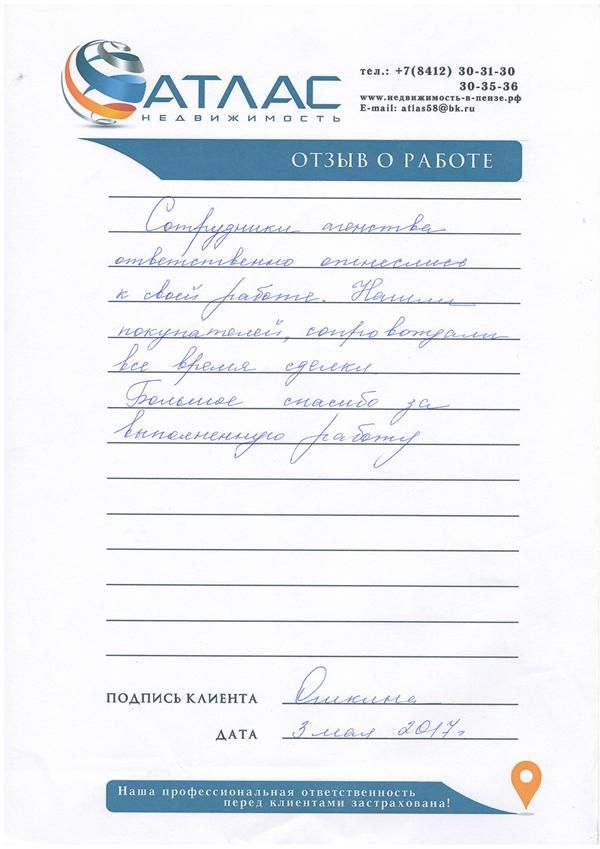 АТЛАС
НЕДВИЖИМОСТЬ
тел.: +7(8412) 30-31-30
30-35-36
www.недвижимость-в-пензе.рф
E-mail: atlas58@bk.ru
ОТЗЫВ О РАБОТЕ
Сотрудники агенства
ответственно отнеслись
к своей работе. Нашли
покупателей, сопровождали
все время сделки
Большое спасибо за
выполненную работу
ПОДПИСЬ КЛИЕНТА
ДАТА 3 мая 2017г
Наша профессиональная ответственность
перед клиентами застрахована!